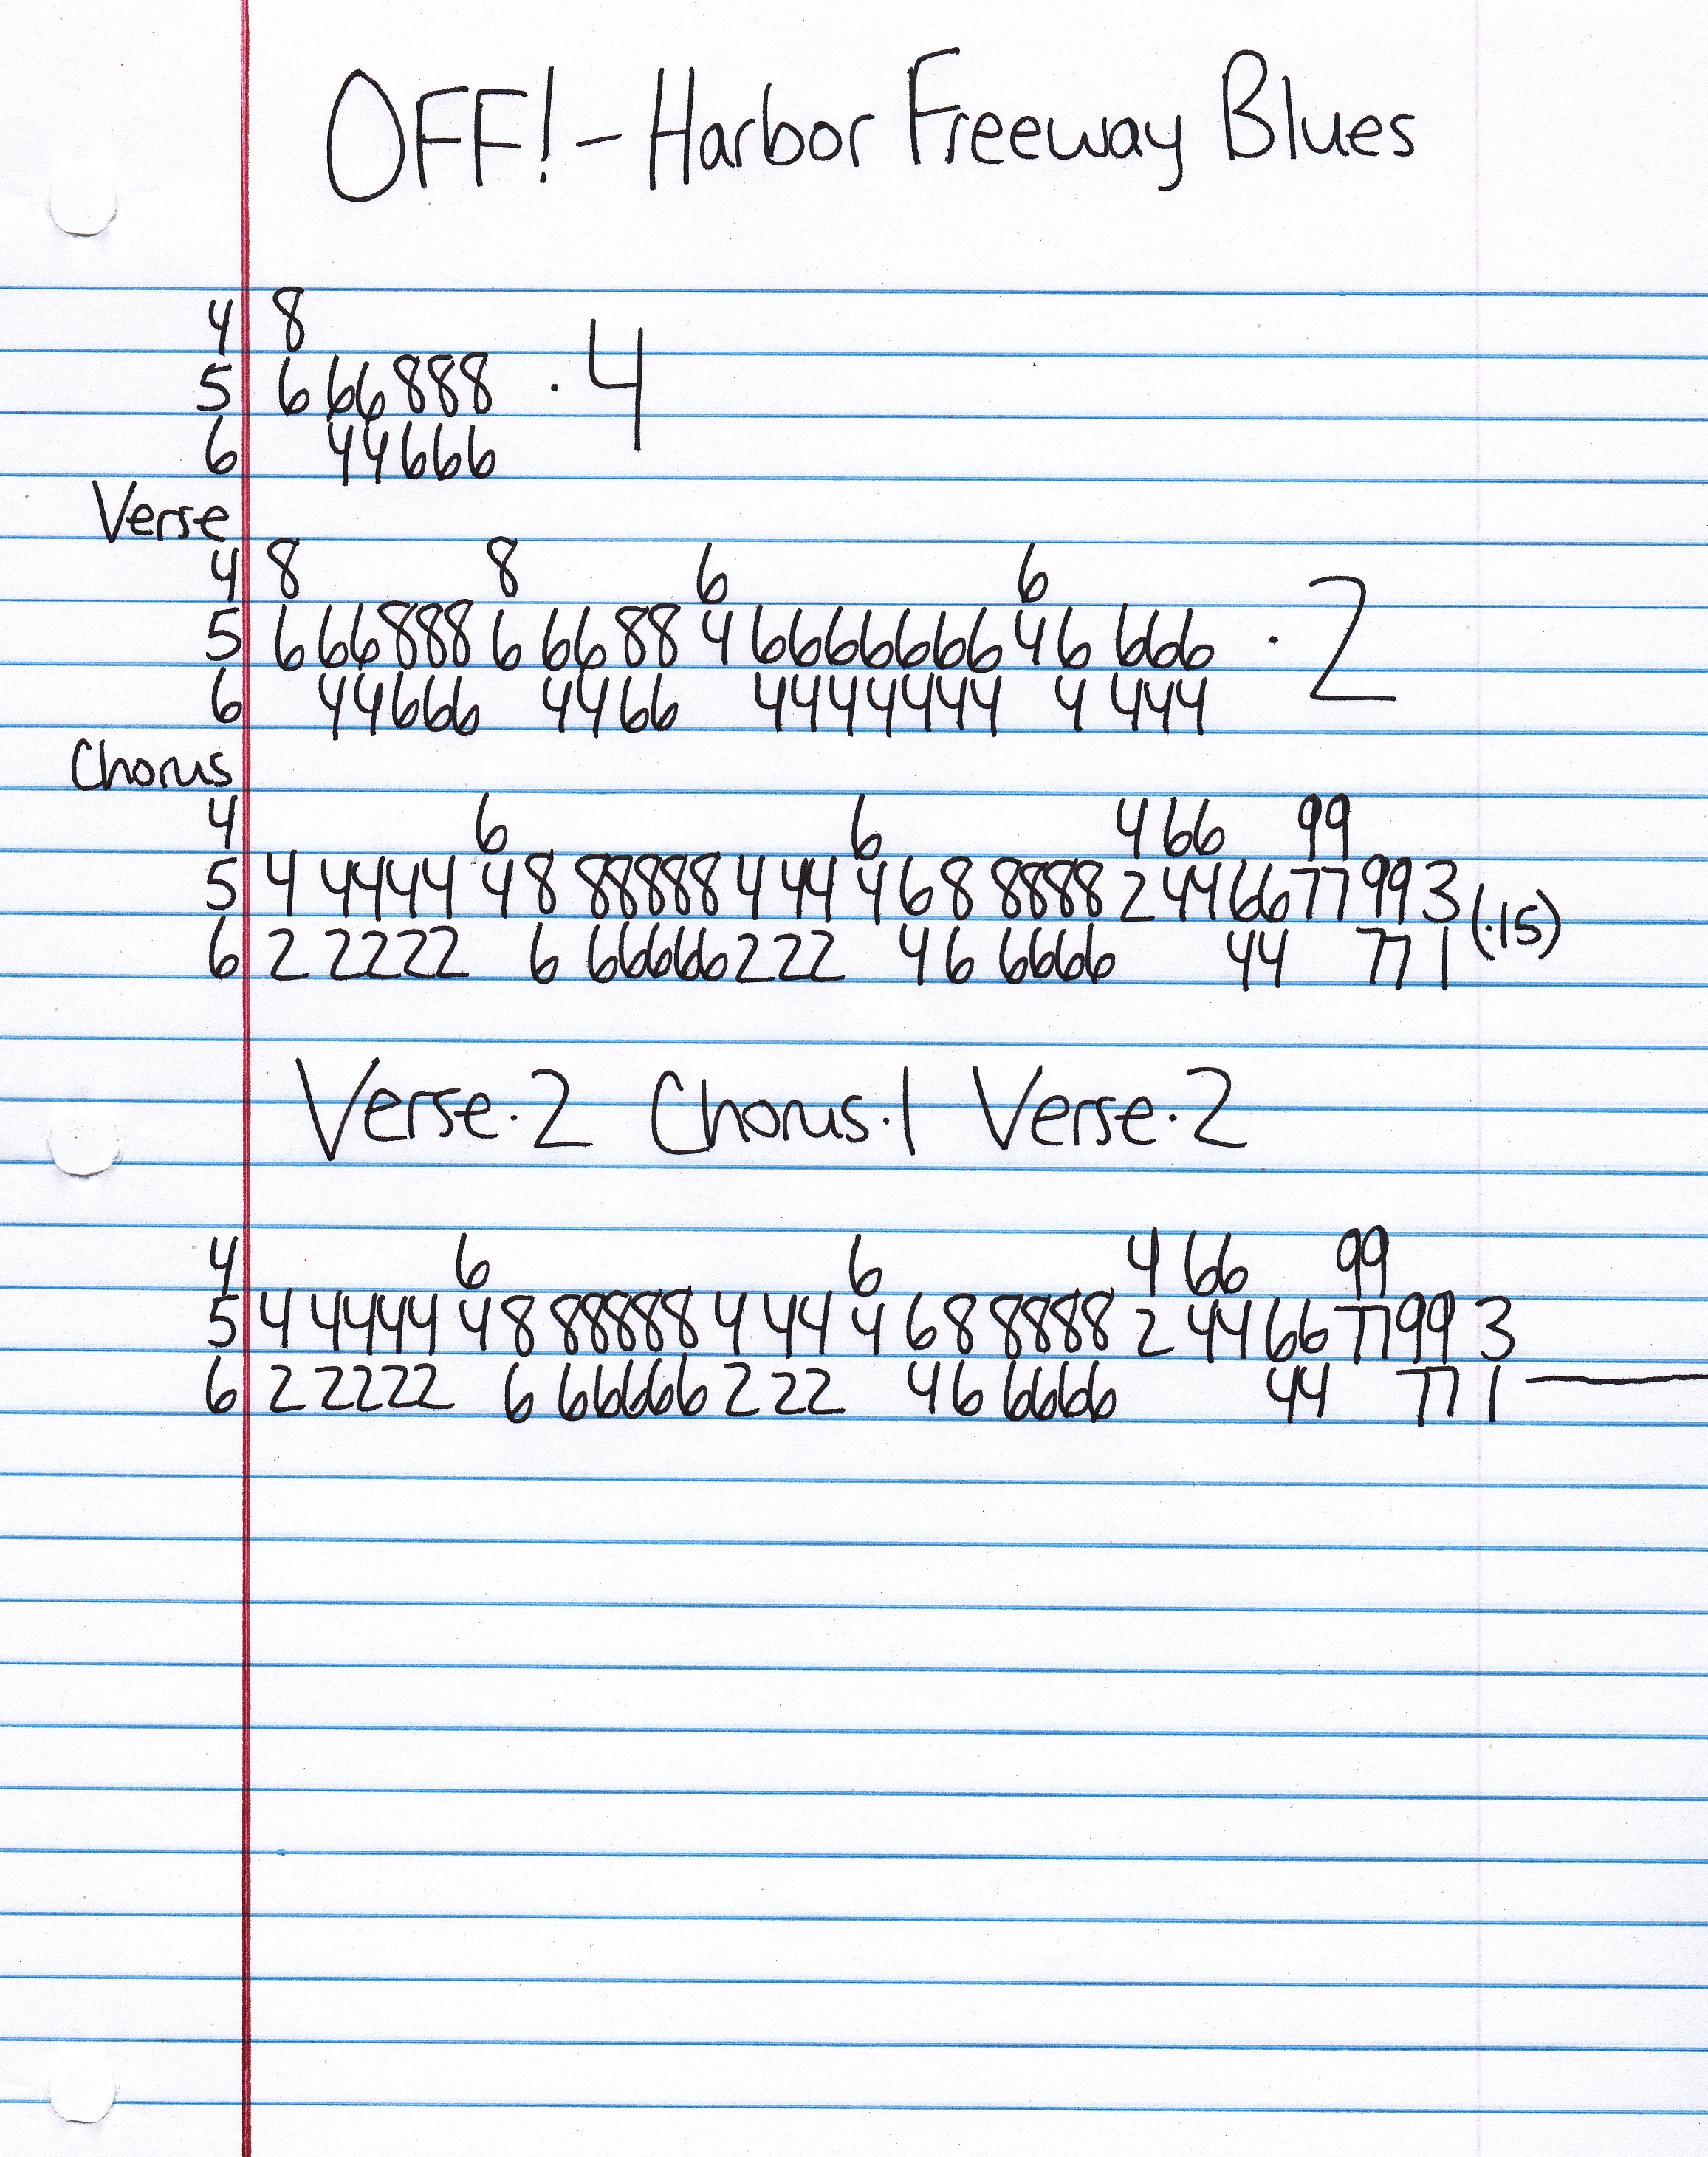 OFF! - Harbor Freeway Blues
4 8
5 6 66888 · 4
6 44666
Verse
4 8 8 6 6
5 6 66888 6 6688 4 6666666 46 666 · 2
6 44666 4466 4444444 4 444
Chorus
4 6 6 4 66 99
5 4 4444 48 88888 4 44 4 68 8888 2 44667799 3 (·15)
6 2 2222 6 66666 222 46 6666 44 77 1
Verse·2 Chorus·1 Verse·2
4 6 6 4 66 99
5 4 4444 48 88888 4 44 4 68 8888 2 44 66 7799 3
6 2 2222 6 66666 2 22 46 6666 44 77 1